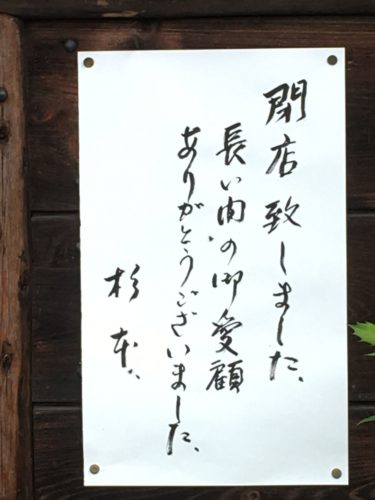 閉店致しました、
長い間の御愛顧
ありがとうございました、
杉本、